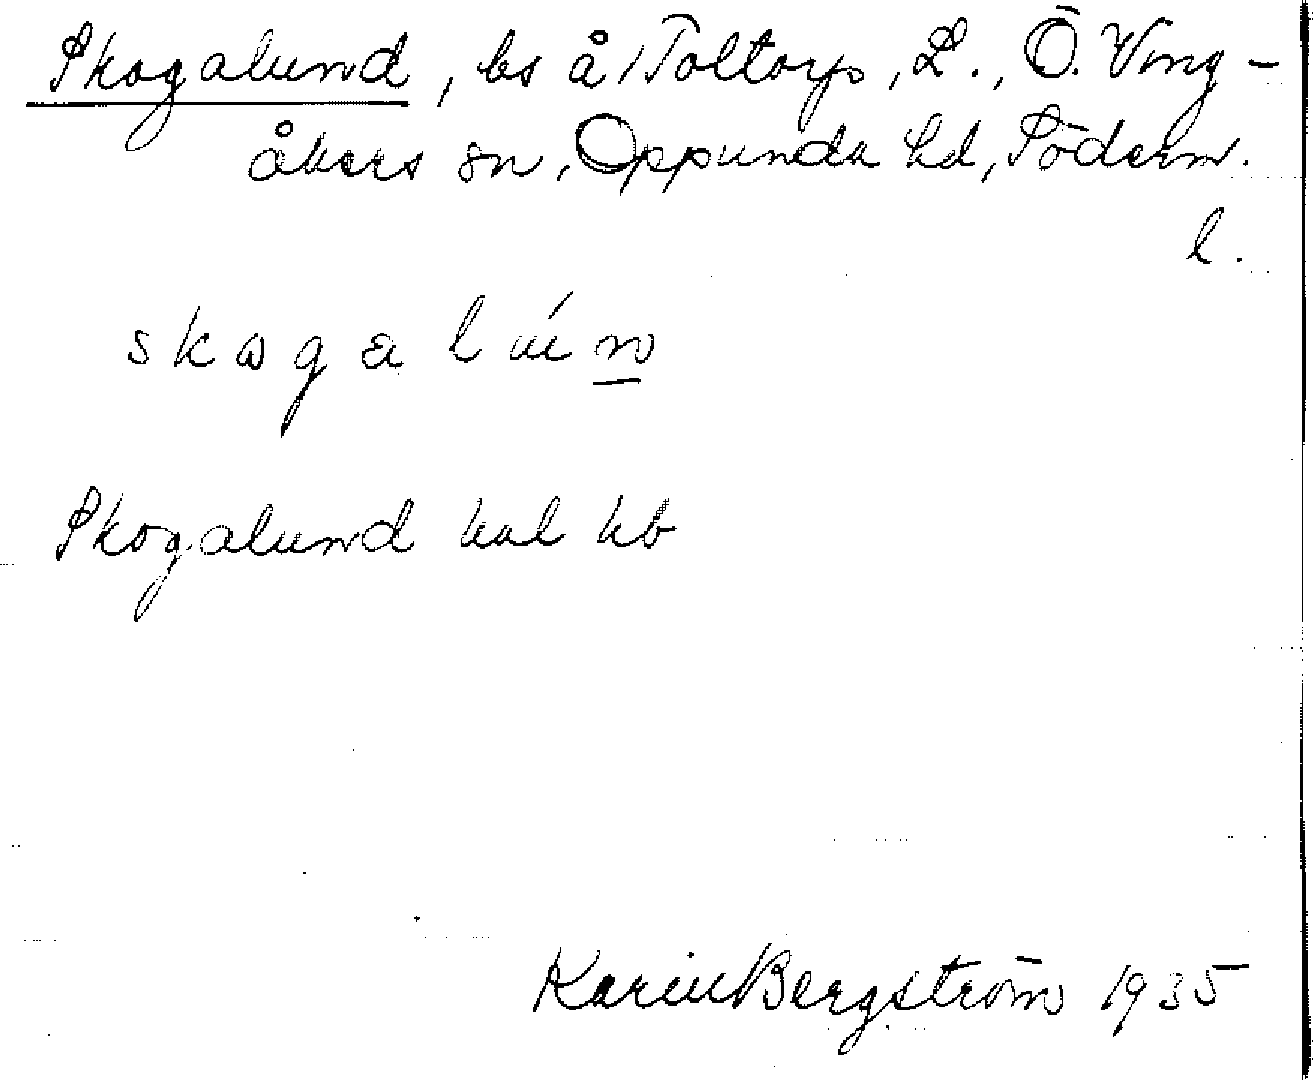 Skogalund, bs å Toltorp, L., Ö. Ving-
åkers sn, Oppunda hd, Söderm.
l.
skogalún
Skogalund kal kb
Karin Bergström 1935